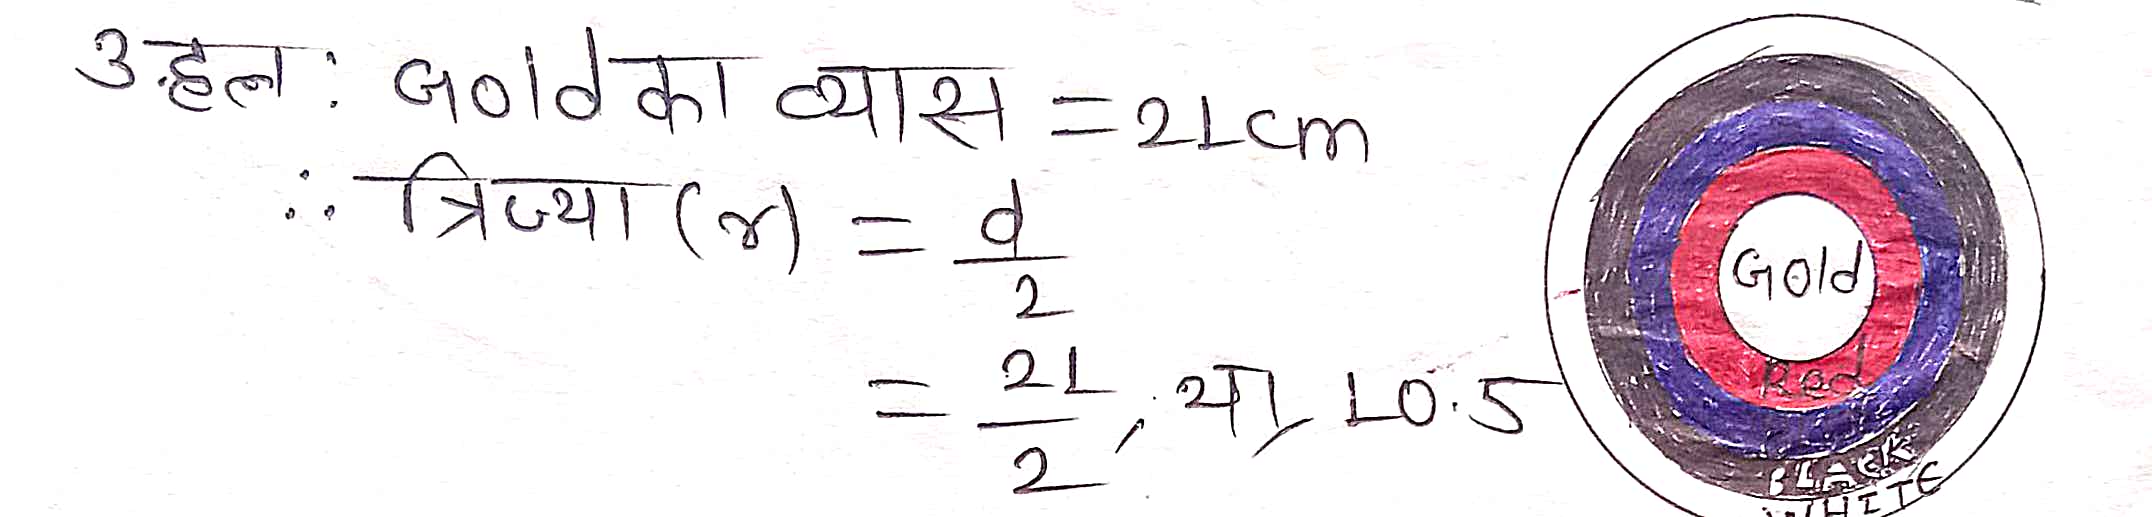 3.हल: Gold का व्यास = 21cm
∴ त्रिज्या (r) = d/2
= 21/2, या, 10.5
Gold
Red
BLACK
WHITE